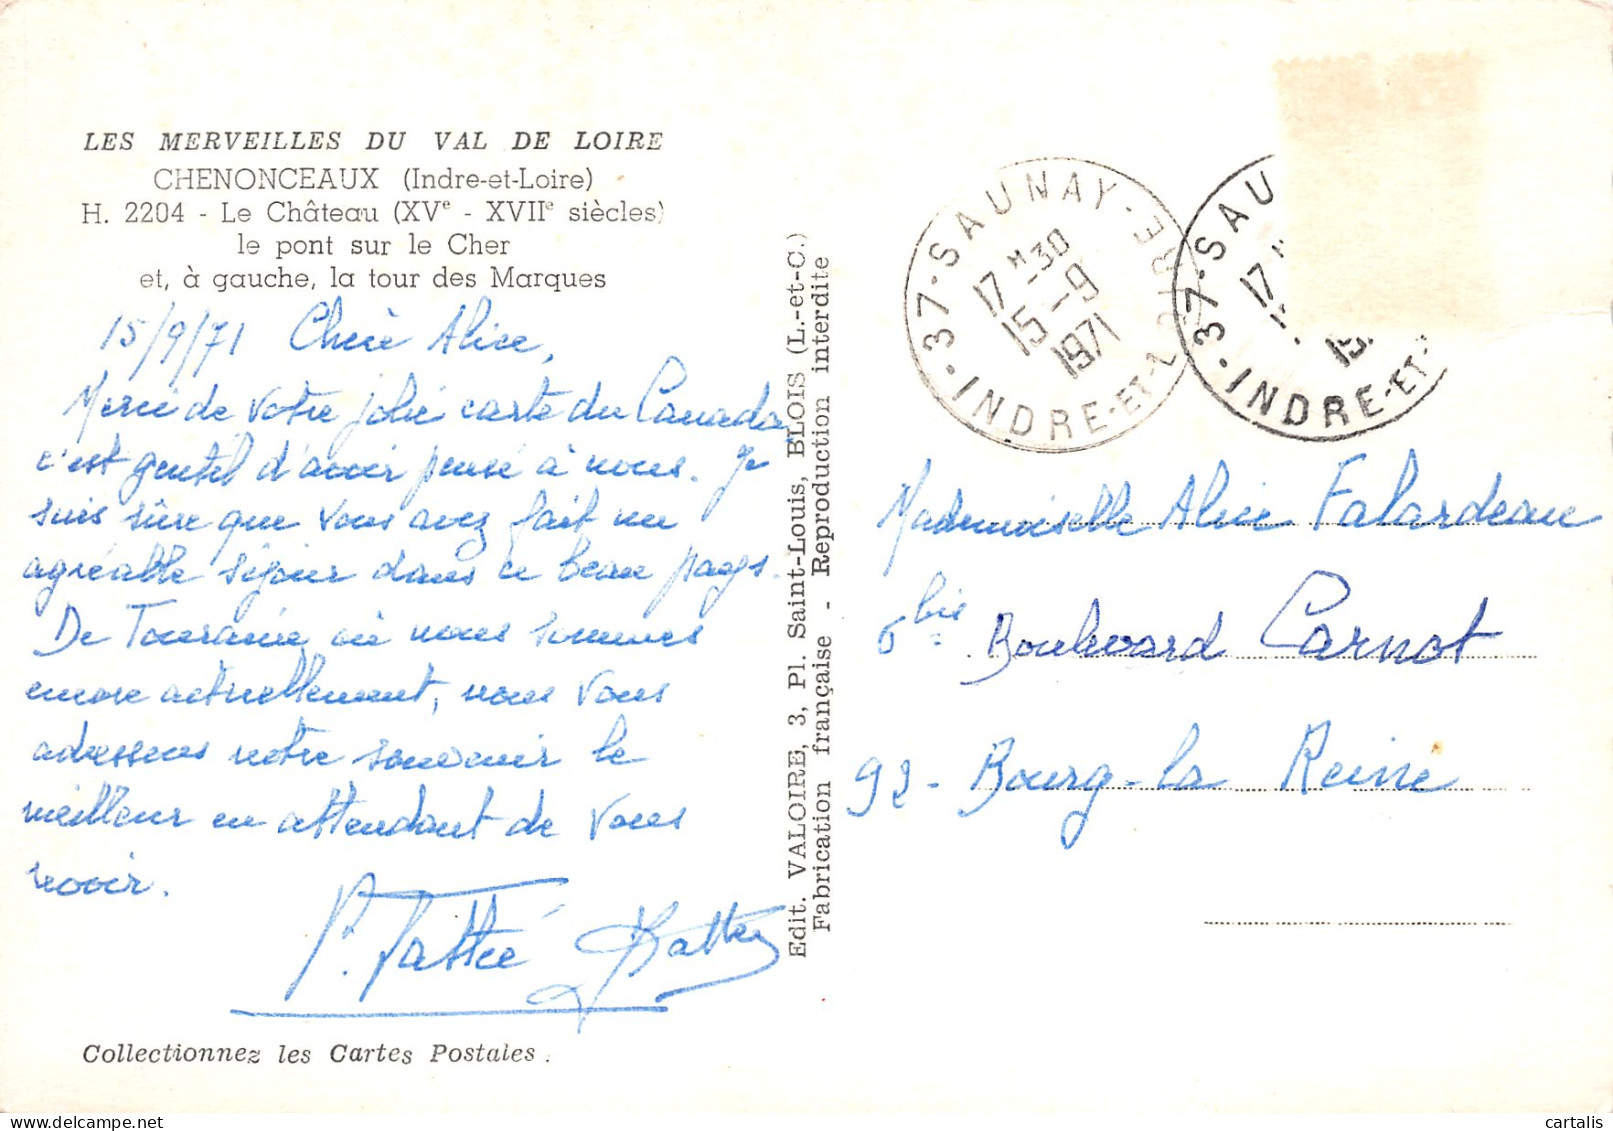 LES MERVEILLES DU VAL DE LOIRE
CHENONCEAUX (Indre-et-Loire)
H. 2204 - Le Château (XVe - XVIIe siècles)
le pont sur le Cher
et, à gauche, la tour des Marques
15/9/71 Chère Alice,
Merci de votre jolie carte du Canada,
c'est gentil d'avoir pensé à nous. Je
suis sûre que vous avez fait un
agréable séjour dans ce beau pays.
De Touraine où nous sommes
encore actuellement, nous vous
adressons notre souvenir le
meilleur en attendant de vous
revoir.
Collectionnez les Cartes Postales.
Edit. VALOIRE, 3, Pl. Saint-Louis, BLOIS (L.-et-C.)
Fabrication française - Reproduction interdite
37-SAUNAY-
INDRE-ET-LOIRE
17 H-30
15-9
1971
37-SAU
INDRE-ET-
17 H
15
Mademoiselle Alice Falardeau
6 bis Boulevard Carnot
92- Bourg-la Reine
cartalis